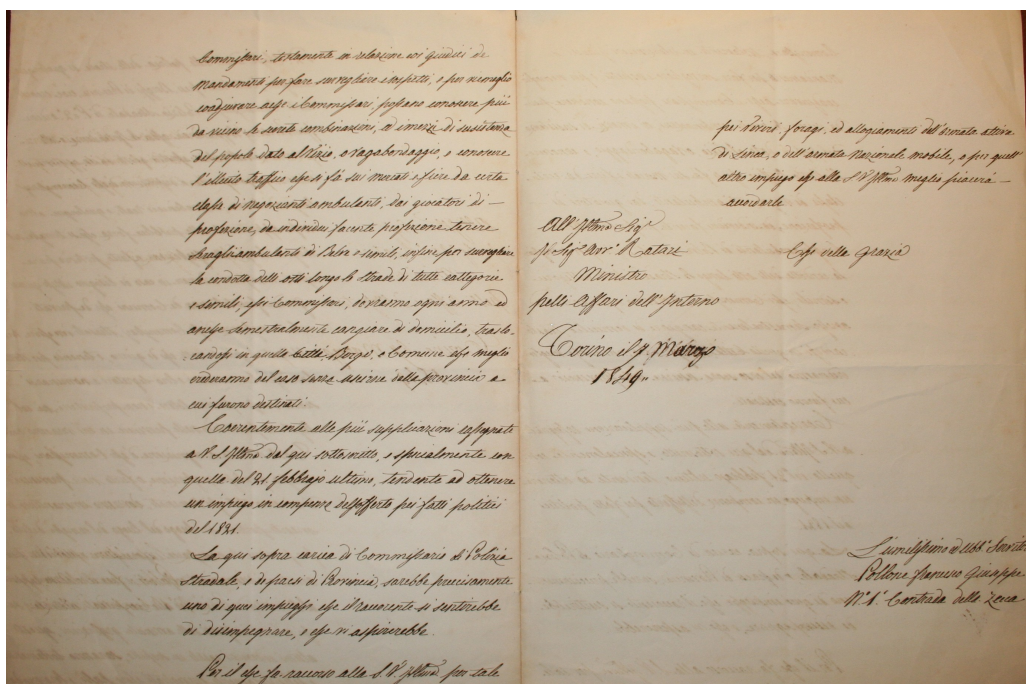 Commissari, testamente in relazione coi giudici di
mandamenti per fare sorvegliare i sospetti, e per meglio
coadjuvare essi i Commissari, possano conoscere più
da vicino le secrete combinazioni, ed i mezzi di sussistenza
del popolo dato all'ozio, o vagabondaggio, e conoscere
l'illecito traffico che si fà sui mercati e fiere da certa
classe di negozianti ambulanti, dai giocatori di
professione, da individui facenti professione tenere
seragli ambulanti di Belve e simili, infine per sorvegliare
la condotta delli osti lungo le strade di tutte cattegorie
e simili, essi Commissari, dovranno ogni anno ed
anche semestralmente cangiare di domicilio, traslo-
candosi in quella Città, Borgo, o Comune che meglio
crederanno del caso senza uscirne dalla provincia a
cui furono destinati.
Coerentemente alle più supplicazioni rassegnate
a V. S. Illma dal qui sottoscritto, e specialmente con
quella del 21 febbrajo ultimo, tendente ad ottenere
un impiego in compenso del sofferto pei fatti politici
del 1821.
La qui sopra carica di Commissario di Polizia
stradale, e de' paesi di Provincia, sarebbe precisamente
uno di quei impieghi che il ricorrente si sentirebbe
di disimpegnare, e che vi aspirerebbe.
Per il che fa ricorso alla S. V. Illma per tale
pei viveri, foragi, ed allogiamenti dell'armata attiva
di Linea, e dell'armata Nazionale mobile, o per quell'
altro impiego che alla S. V. Illma meglio piacerà
accordarle
Che della grazia
All'Illmo Sigr
Il Sigr Avv. Ratazzi
Ministro
pelli Affari dell'Interno
Torino il Marzo
1849
L'umilissimo ed ubb. Servitore
Pollone francesco Giuseppe
N. 1. Contrada della Zecca